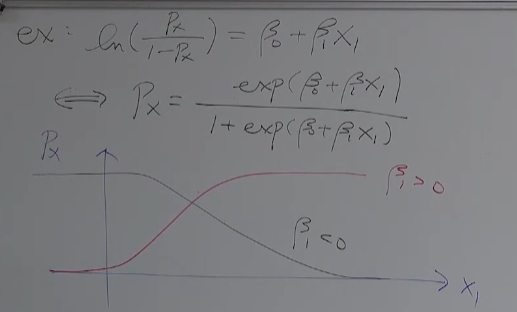 ex: ln(Px/(1-Px)) = β₀ + β₁X₁
⟺ Px = exp(β₀+β₁X₁)/(1+exp(β₀+β₁X₁))
Px
β₁>0
β₁<0
X₁